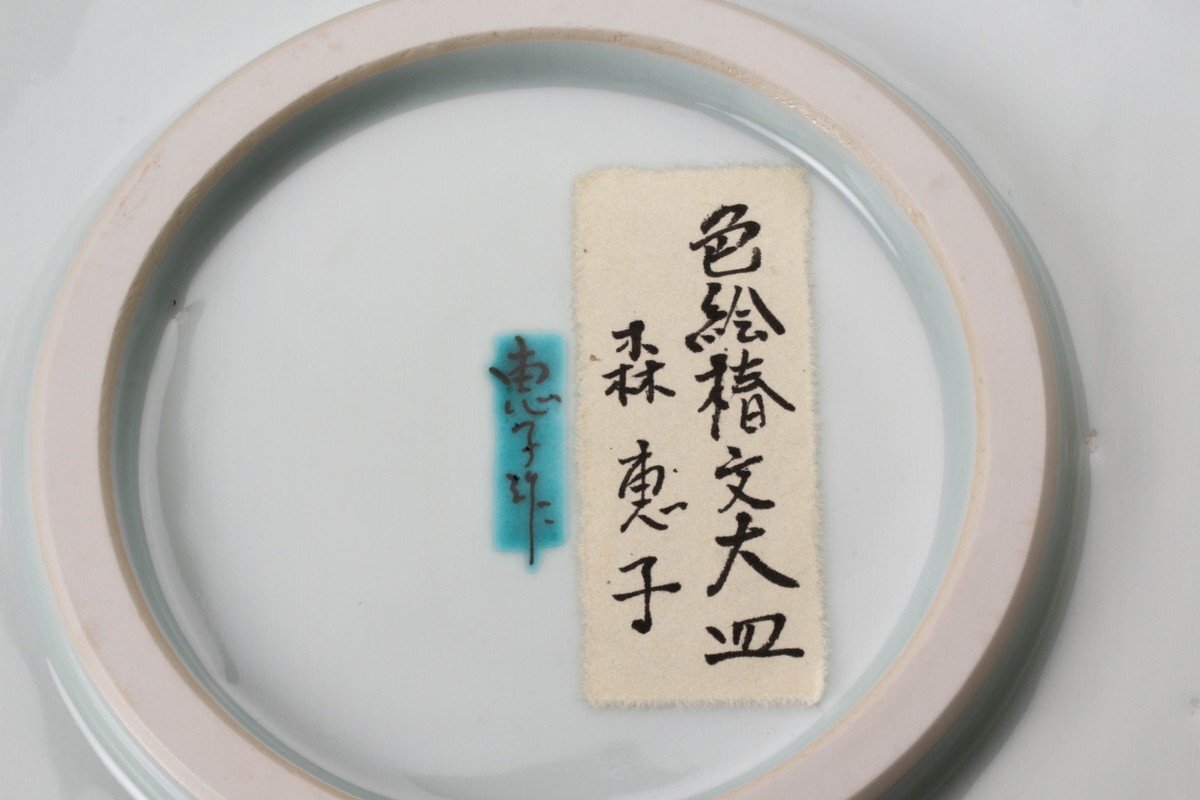 色絵椿文大皿
森恵子
恵子作